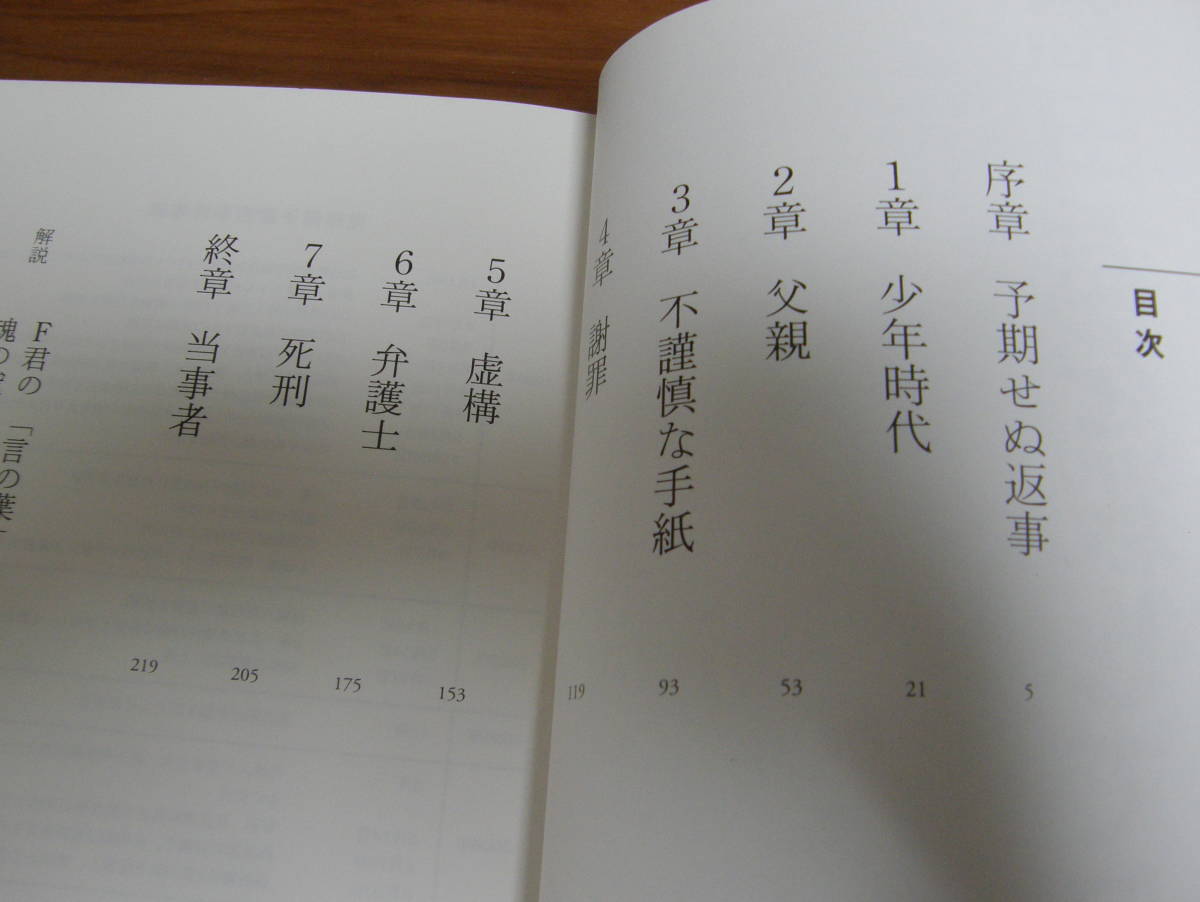 目次
序章 予期せぬ返事 5
1章 少年時代 21
2章 父親 53
3章 不謹慎な手紙 93
4章 謝罪 119
5章 虚構 153
6章 弁護士 175
7章 死刑 205
終章 当事者 219
解説 F君の「言の葉
魂の